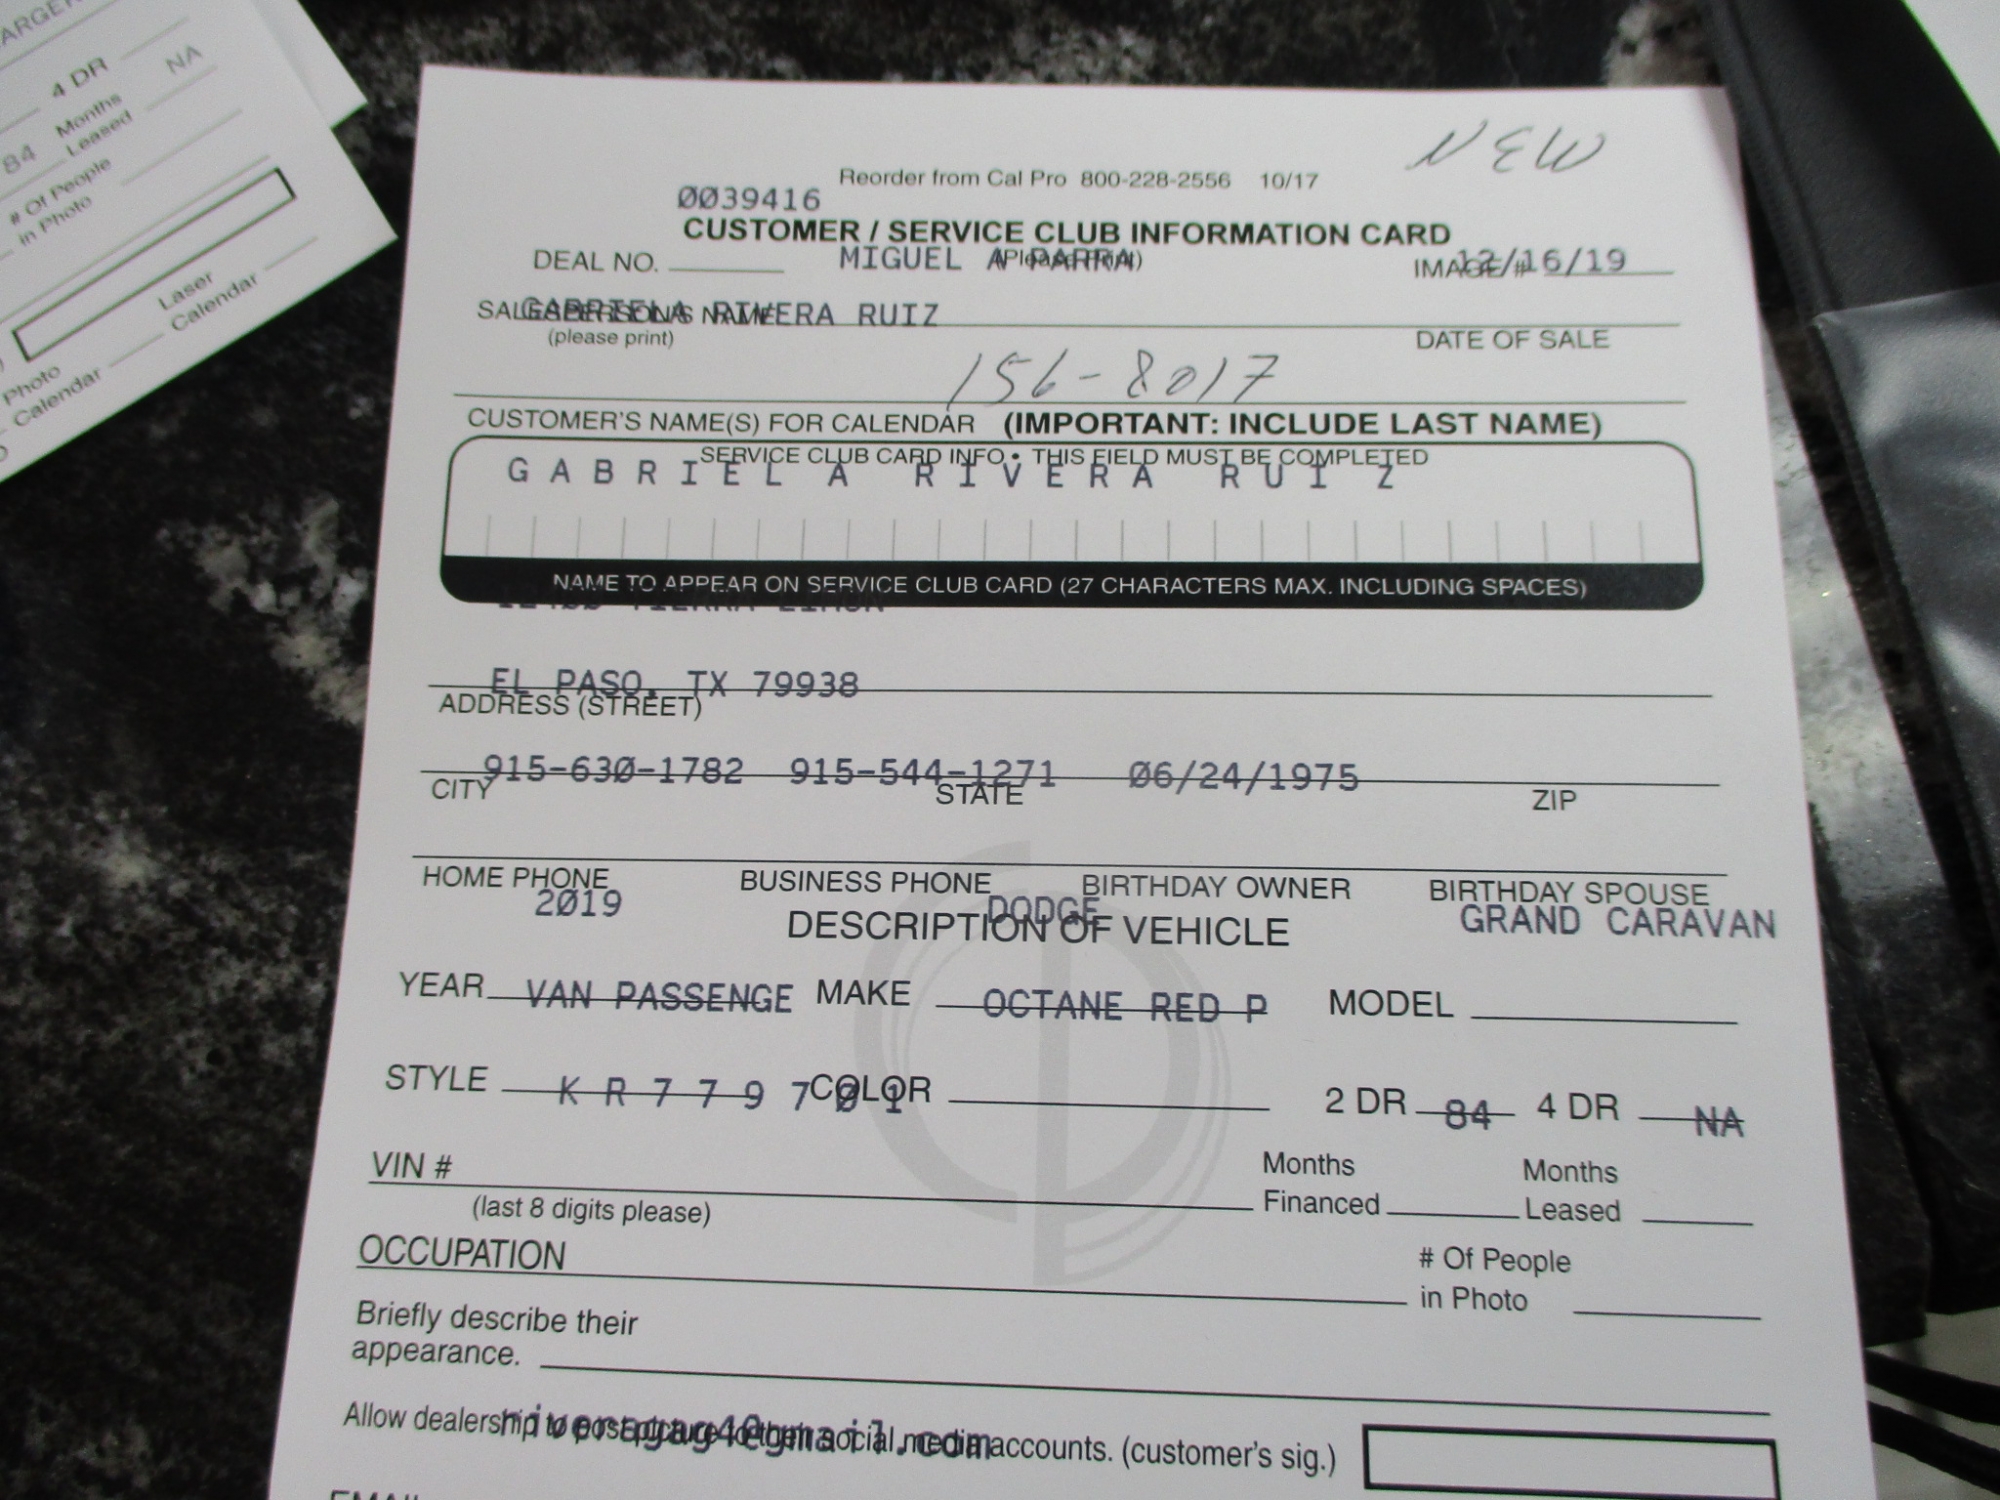 ARGER
4 DR
NA
84 Months
Leased
# Of People
in Photo
Laser
Calendar
Photo
Calendar
NEW
Reorder from Cal Pro 800-228-2556 10/17
0039416
CUSTOMER / SERVICE CLUB INFORMATION CARD
DEAL NO. MIGUEL A PARRA (Please Print) IMAGE # 12/16/19
SALESPERSON'S NAME GABRIELA RIVERA RUIZ
(please print) DATE OF SALE
156-8017
CUSTOMER'S NAME(S) FOR CALENDAR (IMPORTANT: INCLUDE LAST NAME)
SERVICE CLUB CARD INFO • THIS FIELD MUST BE COMPLETED
GABRIELA RIVERA RUIZ
NAME TO APPEAR ON SERVICE CLUB CARD (27 CHARACTERS MAX. INCLUDING SPACES)
TIERRA LIMON
EL PASO, TX 79938
ADDRESS (STREET)
915-630-1782 915-544-1271 06/24/1975
CITY STATE ZIP
HOME PHONE BUSINESS PHONE BIRTHDAY OWNER BIRTHDAY SPOUSE
2019 DODGE GRAND CARAVAN
DESCRIPTION OF VEHICLE
YEAR VAN PASSENGE MAKE OCTANE RED P MODEL
STYLE KR779701 COLOR 2 DR 84 4 DR NA
VIN # Months Financed Months Leased
(last 8 digits please)
OCCUPATION # Of People in Photo
Briefly describe their
appearance.
Allow dealership to post picture to their social media accounts. (customer's sig.)
riveragag4@gmail.com
EMAIL